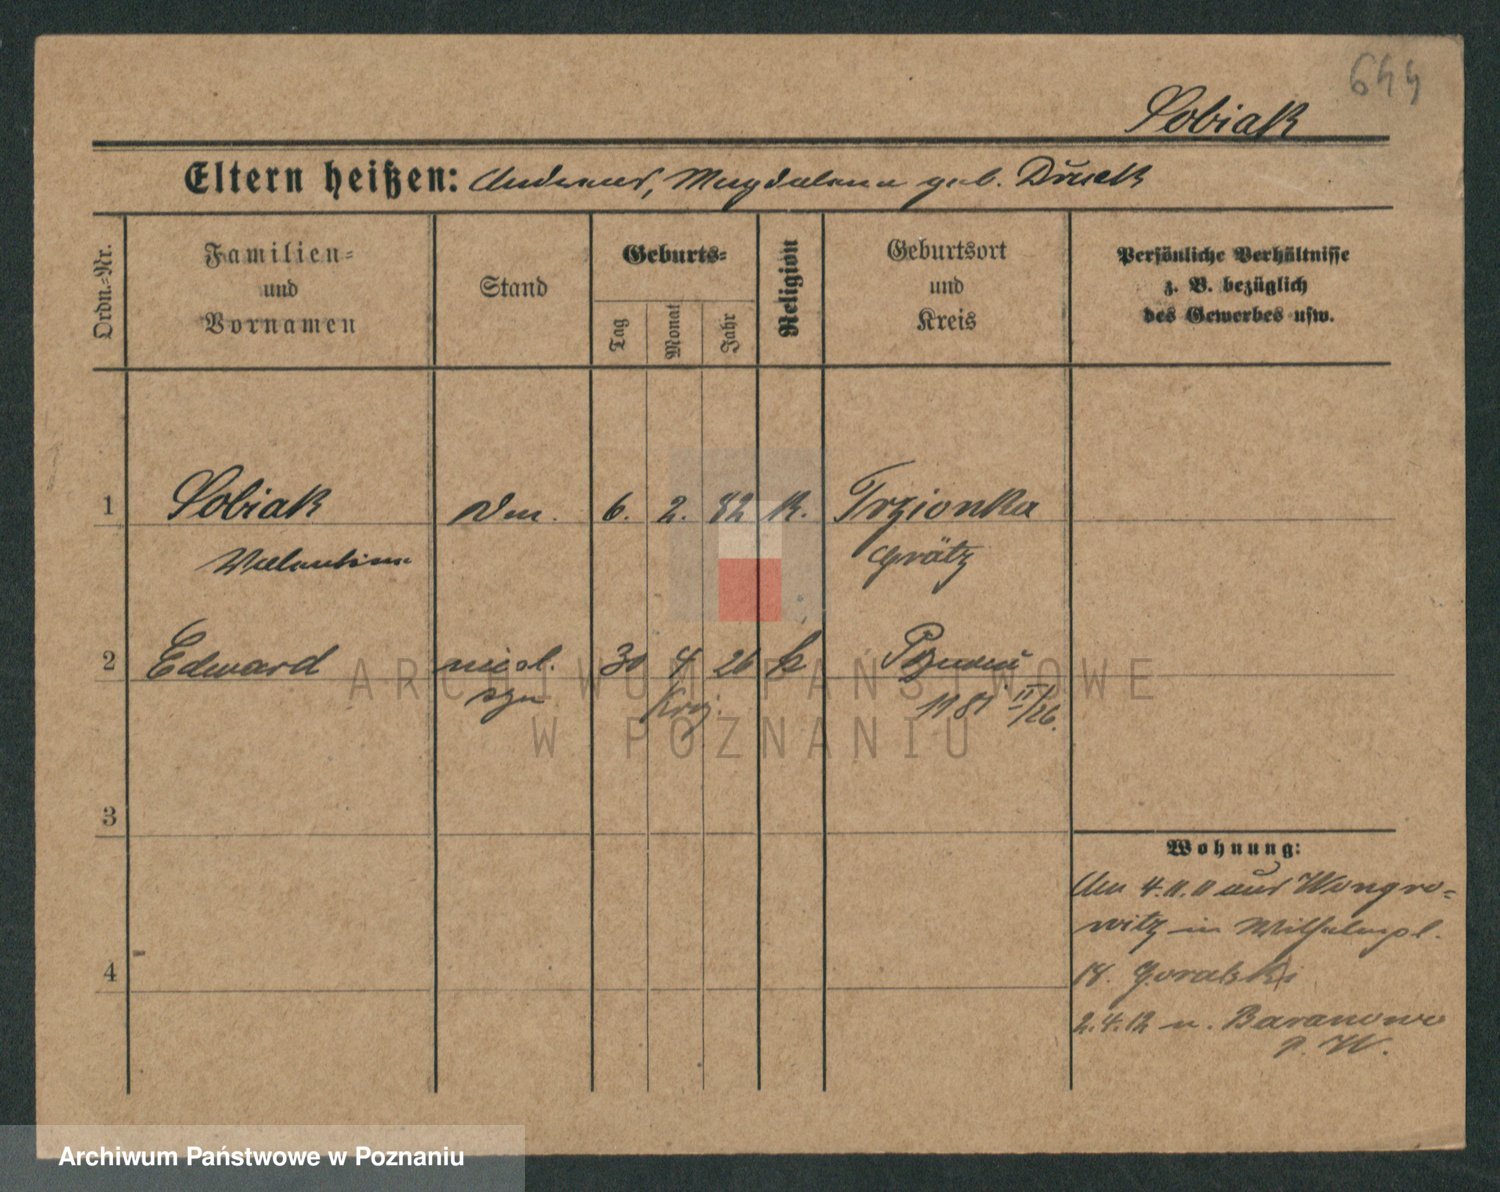 644
Sobiak
Eltern heißen: Andreas, Magdalena geb. Druck
Ordn.-Nr.
Familien-
und
Vornamen
Stand
Geburts-
Tag
Monat
Jahr
Religion
Geburtsort
und
Kreis
Persönliche Verhältnisse
z. B. bezüglich
des Gewerbes usw.
1 Sobiak 6. 2. 82 K. Trzionka
Grätz
2 Edward 30 4 26 k Poznań
syn 1181 II/26.
3
Wohnung:
Am 4.11.11 aus Wongro-
witz in Wilhelmpl.
18. Goralski
4
2.4.12 n. Baranowo
P. W.
ARCHIWUM PAŃSTWOWE
W POZNANIU
Archiwum Państwowe w Poznaniu